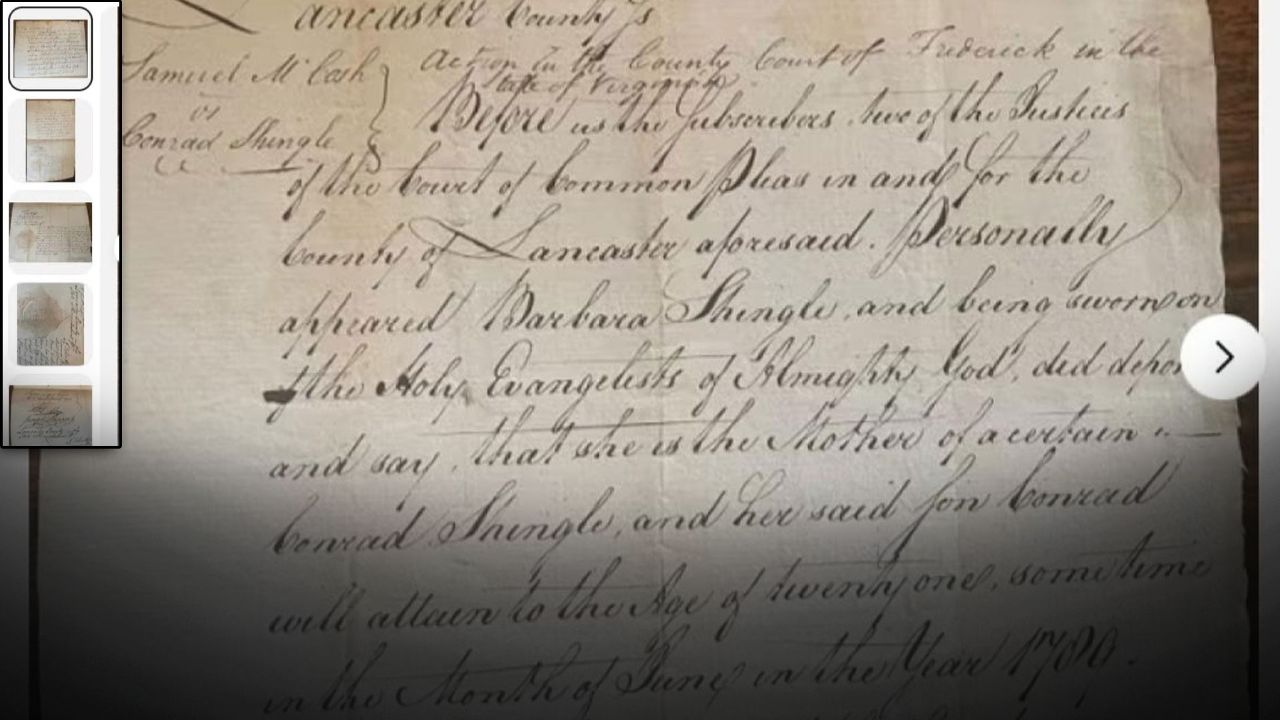 Lancaster County Js
Samuel Mc Cosh
vs
Conrad Shingle
Action in the County Court of Frederick in the
State of Virginia
Before us the Subscribers, two of the Justices
of the Court of Common Pleas in and for the
County of Lancaster aforesaid. Personally
appeared Barbara Shingle, and being sworn on
the Holy Evangelists of Almighty God, did depo
and say, that she is the Mother of a certain
Conrad Shingle, and her said Son Conrad
will attain to the Age of twenty one, some time
in the Month of June in the Year 1789.